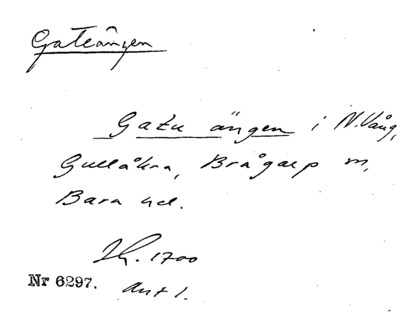 Gateängen
Gatu ängen i N. Vång,
Gullåkra, Brågarp m,
Bara hd.
Jb. 1700
Nr 6297. ant 1.